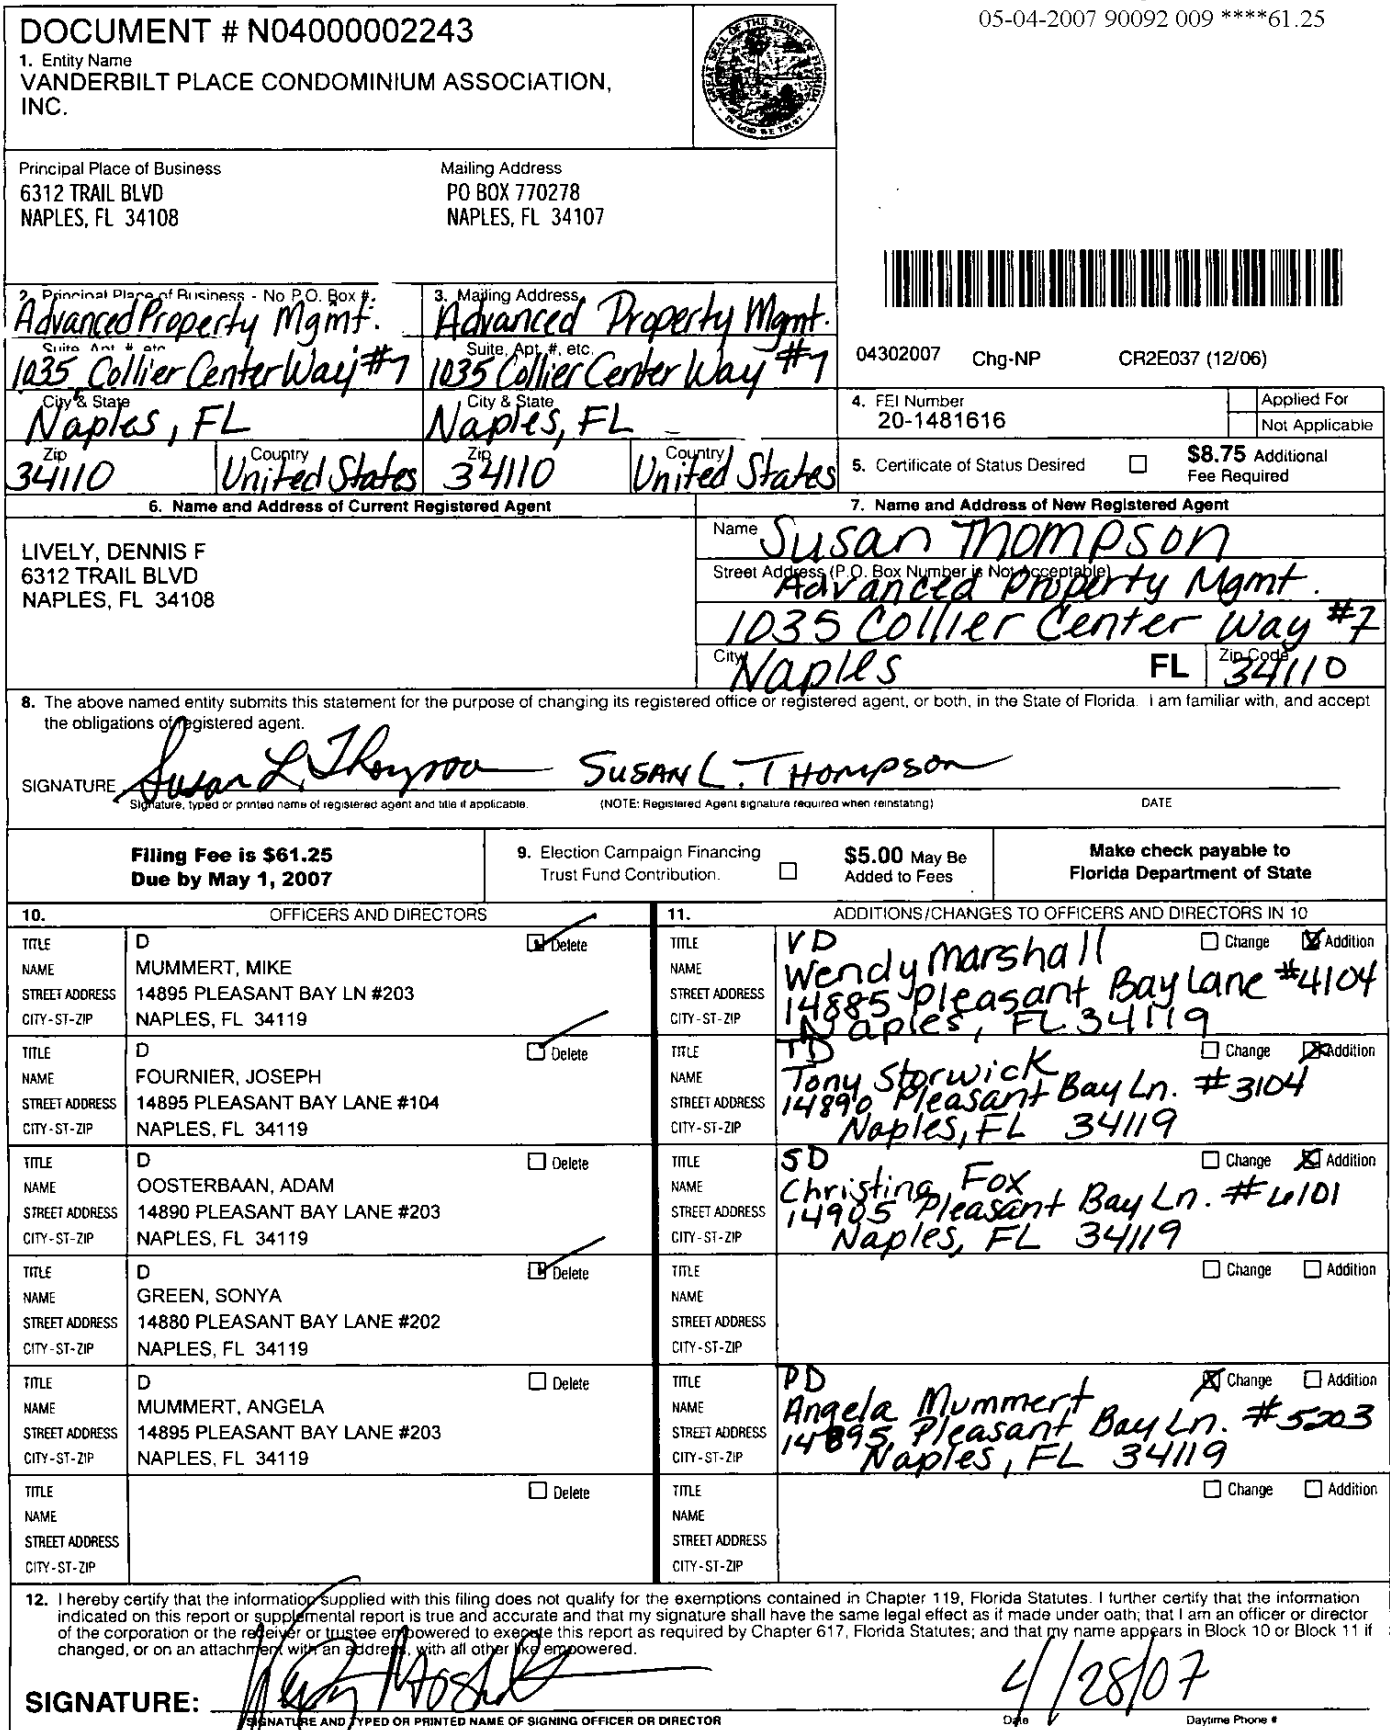 05-04-2007 90092 009 ****61.25
DOCUMENT # N04000002243
1. Entity Name
VANDERBILT PLACE CONDOMINIUM ASSOCIATION,
INC.
GREAT SEAL OF THE STATE OF FLORIDA
IN GOD WE TRUST
Principal Place of Business
6312 TRAIL BLVD
NAPLES, FL 34108
Mailing Address
PO BOX 770278
NAPLES, FL 34107
2. Principal Place of Business - No P.O. Box #.
Advanced Property Mgmt.
Suite, Apt. #, etc.
1035 Collier Center Way #7
City & State
Naples, FL
Zip
34110
Country
United States
3. Mailing Address
Advanced Property Mgmt.
Suite, Apt. #, etc.
1035 Collier Center Way #7
City & State
Naples, FL
Zip
34110
Country
United States
04302007 Chg-NP CR2E037 (12/06)
4. FEI Number
20-1481616
Applied For
Not Applicable
5. Certificate of Status Desired
$8.75 Additional
Fee Required
6. Name and Address of Current Registered Agent
LIVELY, DENNIS F
6312 TRAIL BLVD
NAPLES, FL 34108
7. Name and Address of New Registered Agent
Name Susan Thompson
Street Address (P.O. Box Number is Not Acceptable)
Advanced Property Mgmt.
1035 Collier Center Way #7
City Naples FL Zip Code 34110
8. The above named entity submits this statement for the purpose of changing its registered office or registered agent, or both, in the State of Florida. I am familiar with, and accept
the obligations of registered agent.
SIGNATURE Susan L. Thompson SUSAN L. THOMPSON
Signature, typed or printed name of registered agent and title if applicable. (NOTE: Registered Agent signature required when reinstating) DATE
Filing Fee is $61.25
Due by May 1, 2007
9. Election Campaign Financing
Trust Fund Contribution.
$5.00 May Be
Added to Fees
Make check payable to
Florida Department of State
10. OFFICERS AND DIRECTORS
TITLE D Delete
NAME MUMMERT, MIKE
STREET ADDRESS 14895 PLEASANT BAY LN #203
CITY-ST-ZIP NAPLES, FL 34119
TITLE D Delete
NAME FOURNIER, JOSEPH
STREET ADDRESS 14895 PLEASANT BAY LANE #104
CITY-ST-ZIP NAPLES, FL 34119
TITLE D Delete
NAME OOSTERBAAN, ADAM
STREET ADDRESS 14890 PLEASANT BAY LANE #203
CITY-ST-ZIP NAPLES, FL 34119
TITLE D Delete
NAME GREEN, SONYA
STREET ADDRESS 14880 PLEASANT BAY LANE #202
CITY-ST-ZIP NAPLES, FL 34119
TITLE D Delete
NAME MUMMERT, ANGELA
STREET ADDRESS 14895 PLEASANT BAY LANE #203
CITY-ST-ZIP NAPLES, FL 34119
TITLE Delete
NAME
STREET ADDRESS
CITY-ST-ZIP
11. ADDITIONS/CHANGES TO OFFICERS AND DIRECTORS IN 10
TITLE VD Change Addition
NAME Wendy Marshall
STREET ADDRESS 14885 Pleasant Bay Lane #4104
CITY-ST-ZIP Naples, FL 34119
TITLE TD Change Addition
NAME Tony Storwick
STREET ADDRESS 14890 Pleasant Bay Ln. #3104
CITY-ST-ZIP Naples, FL 34119
TITLE SD Change Addition
NAME Christina Fox
STREET ADDRESS 14905 Pleasant Bay Ln. #6101
CITY-ST-ZIP Naples, FL 34119
TITLE Change Addition
NAME
STREET ADDRESS
CITY-ST-ZIP
TITLE PD Change Addition
NAME Angela Mummert
STREET ADDRESS 14895 Pleasant Bay Ln. #5203
CITY-ST-ZIP Naples, FL 34119
TITLE Change Addition
NAME
STREET ADDRESS
CITY-ST-ZIP
12. I hereby certify that the information supplied with this filing does not qualify for the exemptions contained in Chapter 119, Florida Statutes. I further certify that the information
indicated on this report or supplemental report is true and accurate and that my signature shall have the same legal effect as if made under oath; that I am an officer or director
of the corporation or the receiver or trustee empowered to execute this report as required by Chapter 617, Florida Statutes; and that my name appears in Block 10 or Block 11 if
changed, or on an attachment with an address, with all other like empowered.
SIGNATURE: 4/28/07
SIGNATURE AND TYPED OR PRINTED NAME OF SIGNING OFFICER OR DIRECTOR Date Daytime Phone #